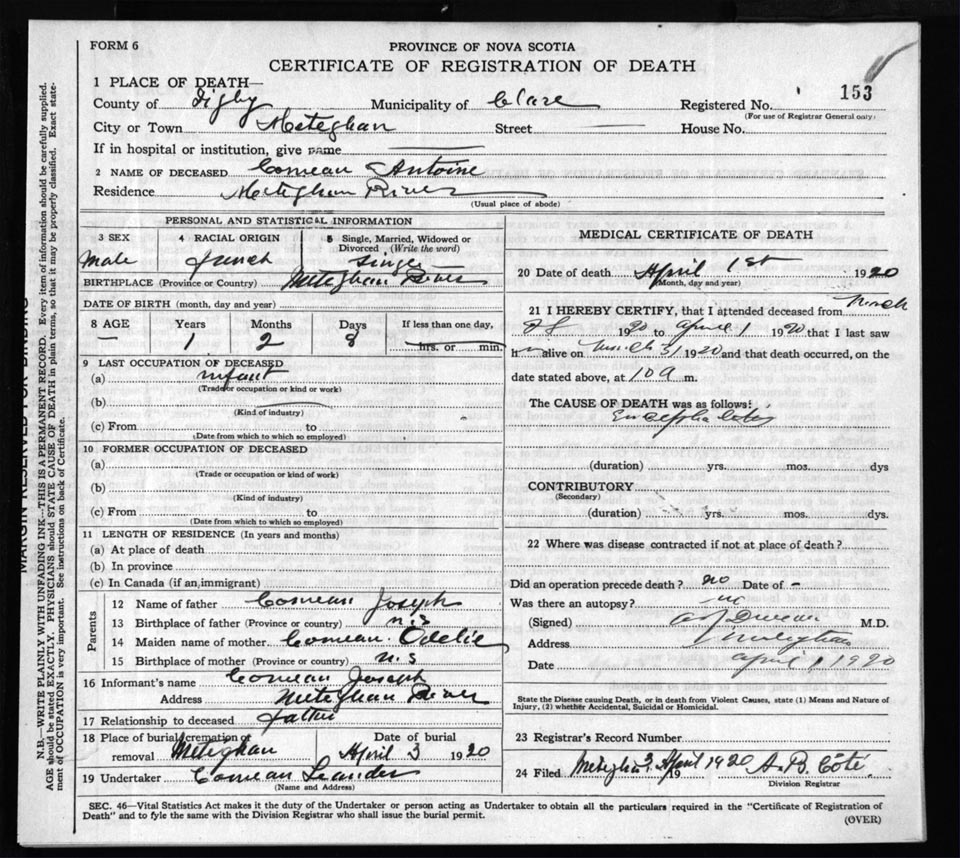 FORM 6
PROVINCE OF NOVA SCOTIA
CERTIFICATE OF REGISTRATION OF DEATH
153
1 PLACE OF DEATH—
County of Digby Municipality of Clare Registered No.
(For use of Registrar General only)
City or Town Meteghan Street House No.
If in hospital or institution, give name
2 NAME OF DECEASED Comeau Antoine
Residence Meteghan River
(Usual place of abode)
PERSONAL AND STATISTICAL INFORMATION
3 SEX 4 RACIAL ORIGIN 5 Single, Married, Widowed or Divorced (Write the word)
Male french Single
BIRTHPLACE (Province or Country) Meteghan River
DATE OF BIRTH (month, day and year)
8 AGE Years Months Days If less than one day,
— 1 2 8 hrs. or min.
9 LAST OCCUPATION OF DECEASED
(a) infant
(Trade or occupation or kind or work)
(b)
(Kind of industry)
(c) From to
(Date from which to which so employed)
10 FORMER OCCUPATION OF DECEASED
(a)
(Trade or occupation or kind of work)
(b)
(Kind of industry)
(c) From to
(Date from which to which so employed)
11 LENGTH OF RESIDENCE (In years and months)
(a) At place of death
(b) In province
(c) In Canada (if an immigrant)
Parents
12 Name of father Comeau Joseph
13 Birthplace of father (Province or country) n.s
14 Maiden name of mother Comeau Odelie
15 Birthplace of mother (Province or country) n.s
16 Informant's name Comeau Joseph
Address Meteghan River
17 Relationship to deceased father
18 Place of burial, cremation or removal Meteghan Date of burial April 3 1920
19 Undertaker Comeau Leander
(Name and Address)
MEDICAL CERTIFICATE OF DEATH
20 Date of death April 1st 1920
(Month, day and year)
21 I HEREBY CERTIFY, that I attended deceased from March
28 1920 to april 1 1920 that I last saw
h alive on March 31 1920 and that death occurred, on the
date stated above, at 10 a m.
The CAUSE OF DEATH was as follows:
(duration) yrs. mos. dys
CONTRIBUTORY
(Secondary)
(duration) yrs. mos. dys.
22 Where was disease contracted if not at place of death?
Did an operation precede death? no Date of –
Was there an autopsy? no
(Signed) M.D.
Address Meteghan
Date april 1, 1920
State the Disease causing Death, or in death from Violent Causes, state (1) Means and Nature of
Injury, (2) whether Accidental, Suicidal or Homicidal.
23 Registrar's Record Number
24 Filed Meteghan 2 April 1920 19 A. B. Côté.
Division Registrar
SEC. 46—Vital Statistics Act makes it the duty of the Undertaker or person acting as Undertaker to obtain all the particulars required in the "Certificate of Registration of
Death" and to fyle the same with the Division Registrar who shall issue the burial permit.
(OVER)
MARGIN RESERVED FOR BINDING
N.B.—WRITE PLAINLY WITH UNFADING INK—THIS IS A PERMANENT RECORD. Every item of information should be carefully supplied.
AGE should be stated EXACTLY. PHYSICIANS should STATE CAUSE OF DEATH in plain terms, so that it may be properly classified. Exact state-
ment of OCCUPATION is very important. See instructions on back of Certificate.